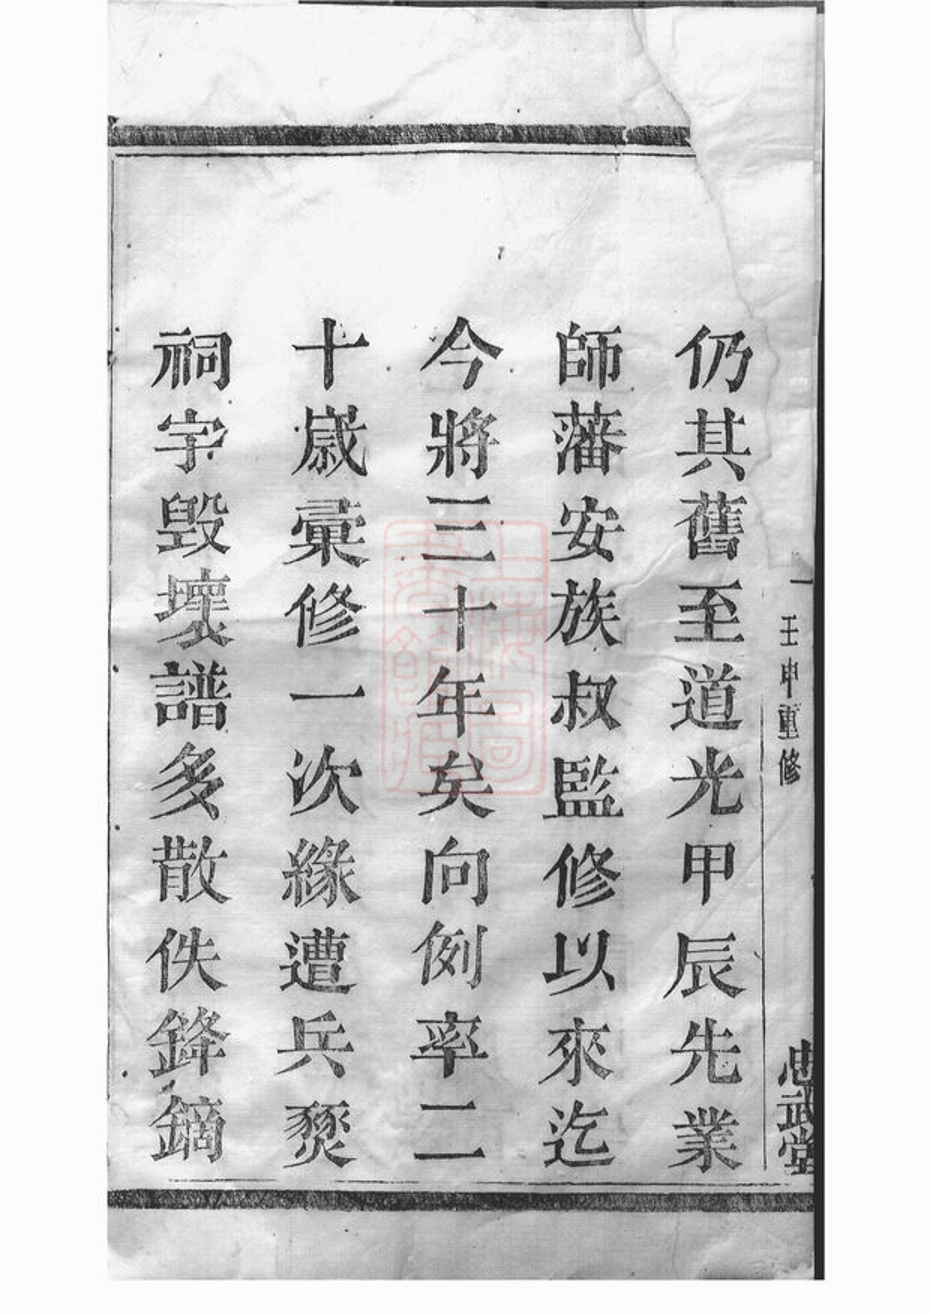 仍其舊至道光甲辰先業
師藩安族叔監修以來迄
今將三十年矣向例率二
十嵗彙修一次緣遭兵燹
祠宇毁壞譜多散佚鋒鏑
壬申重修
忠武堂